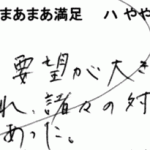 まあまあ満足 ハ やや
要望が大き
れ、諸々の対
あった。